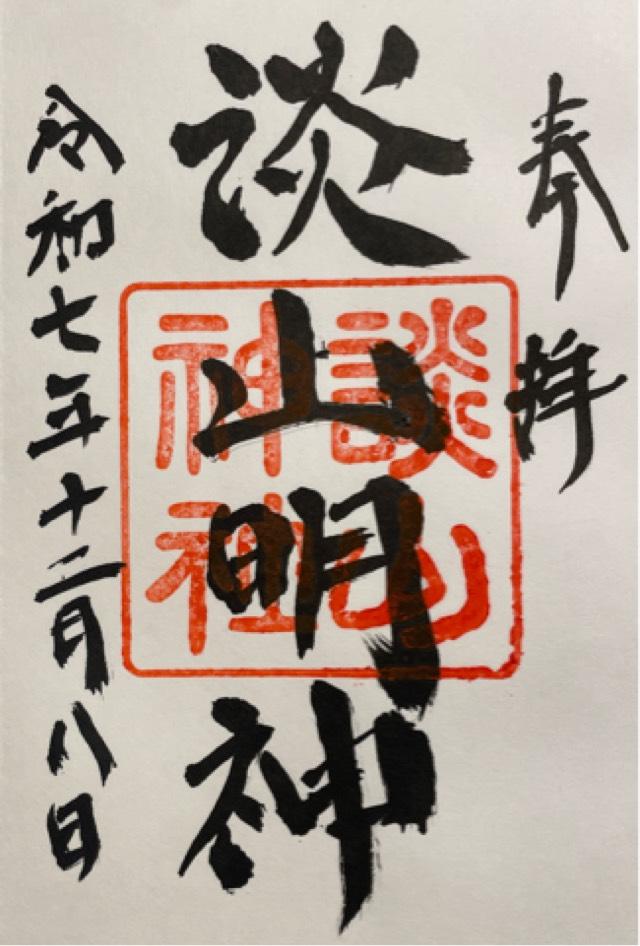 奉拝
談山明神
談山神社
令和七年十二月八日